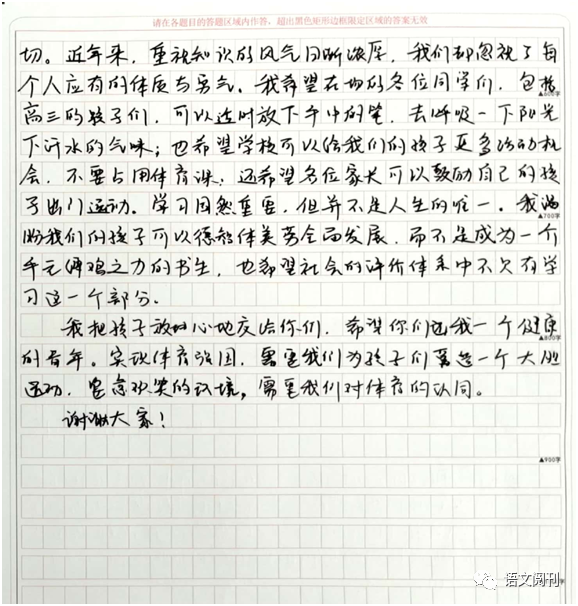 请在各题目的答题区域内作答，超出黑色矩形边框限定区域的答案无效
切。近年来，重视知识的风气日渐浓厚，我们却忽视了每
个人应有的体质与勇气。我希望在场的各位同学们，包括
高三的孩子们，可以适时放下手中的笔，去呼吸一下阳光
下汗水的气味；也希望学校可以给我们的孩子更多活动机
会，不要占用体育课；还希望各位家长可以鼓励自己的孩
子出门运动。学习固然重要，但并不是人生的唯一。我渴
▲700字
盼我们的孩子可以德智体美劳全面发展，而不是成为一个
手无缚鸡之力的书生，也希望社会的评价体系中不只有学
习这一个部分。
我把孩子放心地交给你们，希望你们还我一个健康
▲800字
的青年。实现体育强国，需要我们为孩子们营造一个大胆
运动，肆意欢笑的环境，需要我们对体育的认同。
谢谢大家！
▲900字
语文阅刊